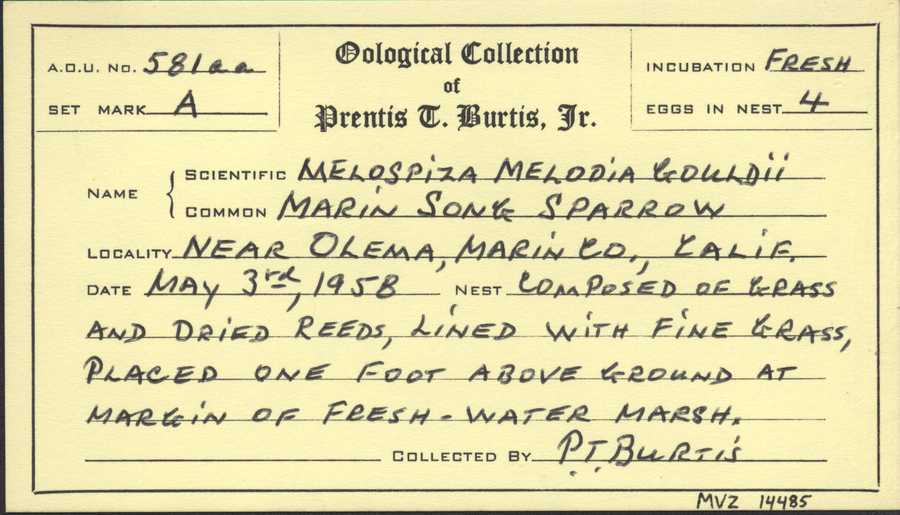 A.O.U. No. 581aa
SET MARK A
Oological Collection
of
Prentis T. Burtis, Jr.
INCUBATION FRESH
EGGS IN NEST 4
NAME
SCIENTIFIC MELOSPIZA MELODIA GOULDII
COMMON MARIN SONG SPARROW
LOCALITY NEAR OLEMA, MARIN CO., CALIF.
DATE MAY 3rd, 1958 NEST COMPOSED OF GRASS
AND DRIED REEDS, LINED WITH FINE GRASS,
PLACED ONE FOOT ABOVE GROUND AT
MARGIN OF FRESH-WATER MARSH.
COLLECTED BY P.T. BURTIS
MVZ 14485